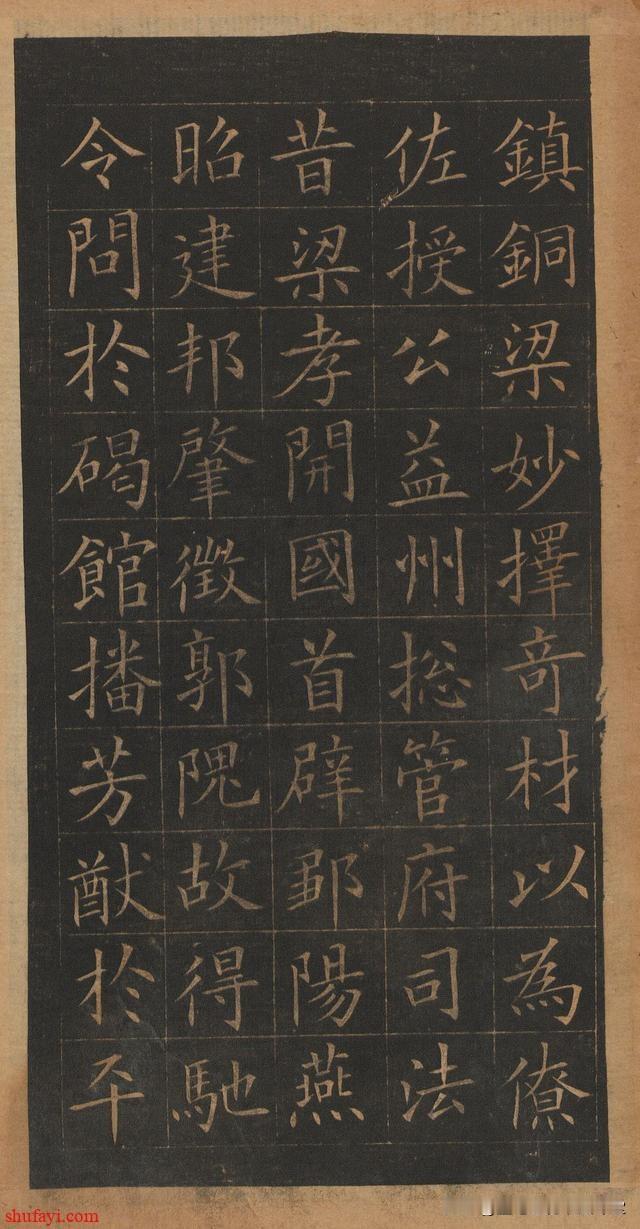 鎮銅梁妙擇竒材以為僚
佐授公益州捴管府司法
昔梁孝開國首辟鄒陽燕
昭建邦肇徵郭隗故得馳
令問於碣館播芳猷於平
shufayi.com